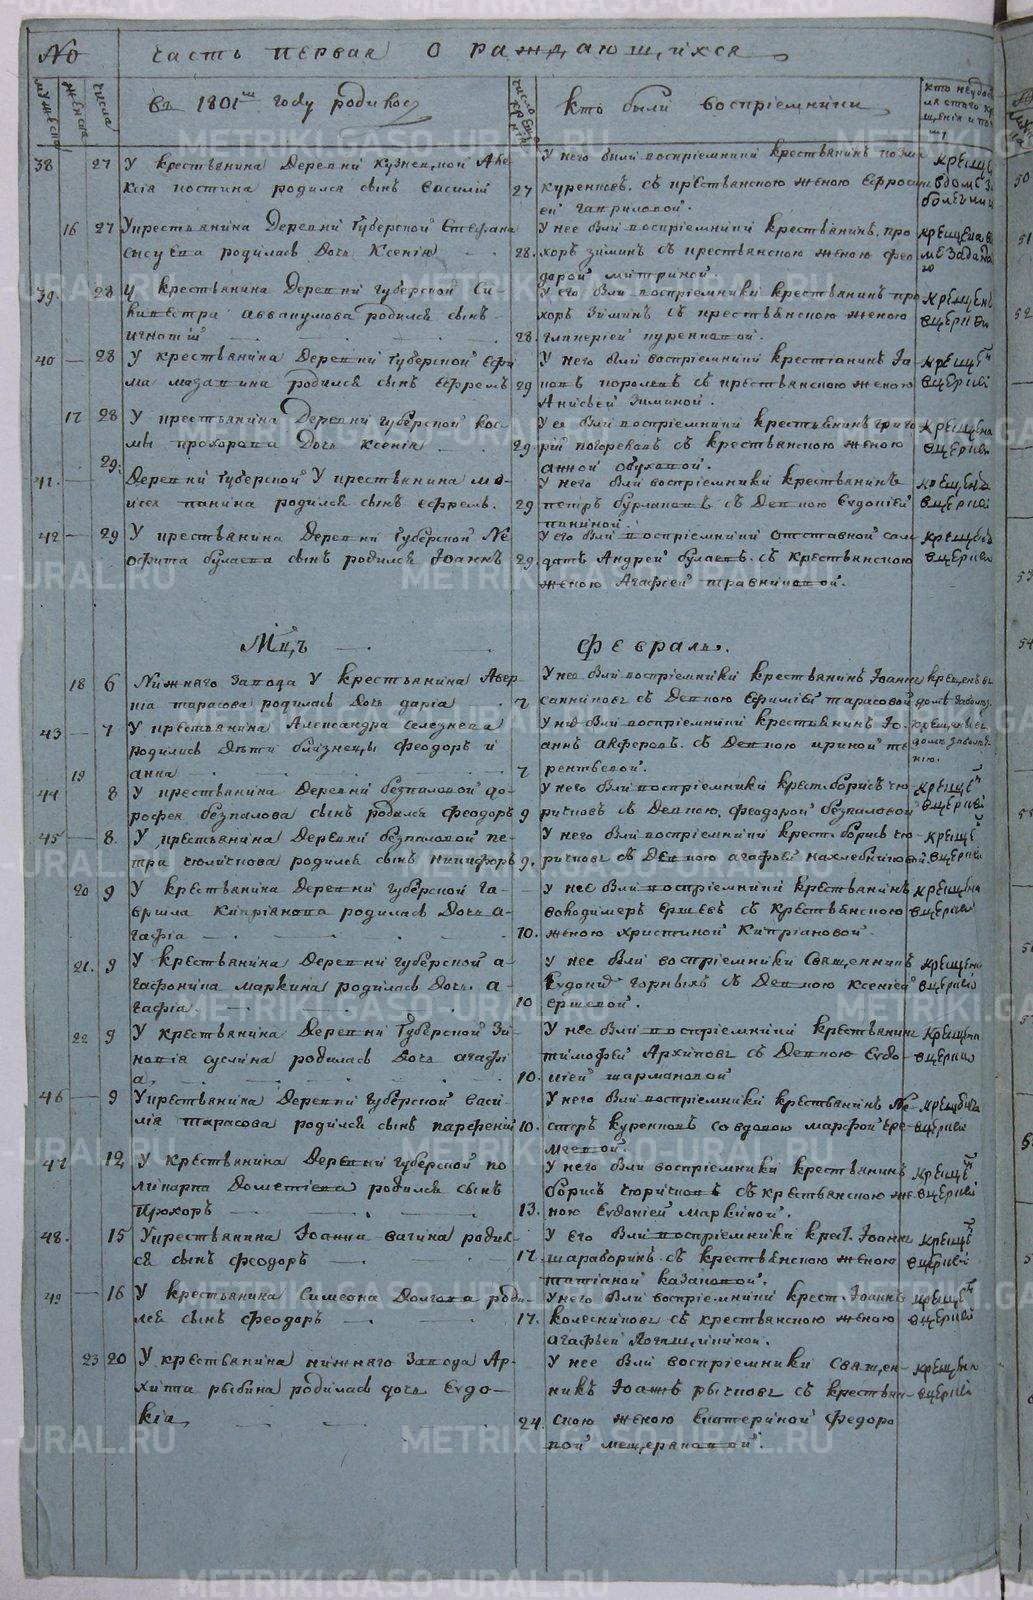 No часть первая о раждающихся
мужеска женска числа въ 1801мъ году родилось число крещ. кто были восприемники
38 27 У крестьянина Деревни Кузнецкой Але-
ксiя постина родился сынъ василiй
27 У него были восприемники крестьянинъ
куренковъ. съ крестьянскою женою Ефросинь-
ей гавриловой. крещенъ в доме за болезнию
16 27 У крестьянина Деревни Губерской Стефана
сысуева родилась дочь Ксенiя
28. У нее были восприемники крестьянинъ про
хоръ зиминъ съ крестьянскою женою Фео
дорой митриной. крещена в
39. 28 У крестьянина Деревни губерской Си
ливестра аввакумова родился сынъ
игнатiй
28. У его были восприемники крестьянинъ про
хоръ зиминъ съ крестьянскою женою
гликерiей куренковой. крещенъ в церкви
40 28 У крестьянина Деревни Губерской Ефи
ма мазанина родился сынъ Ефремъ
29 У него были восприемники крестьянинъ Iа
ковъ королевъ съ крестьянскою женою
Анисьей Зиминой. крещенъ в церкви
17 28 У крестьянина Деревни губерской кос-
мы прохорова дочь ксенiя
29. У ея были восприемники крестьянинъ григо
рiй погореловъ съ крестьянскою женою
анной обуховой. крещена в церкви
41. 29. Деревни губерской У крестьянина мо-
исея панина родился сынъ Ефремъ.
29 У него были восприемники крестьянинъ
петръ бурлаковъ съ Девкою Евдокiей
паниной. крещенъ в церкви
42 29 У крестьянина Деревни губерской Не
офита булаева сынъ родился Iоаннъ
29. У его были восприемники отставной сол
датъ Андрей булаевъ. съ крестьянскою
женою Агафiей травниковой. крещенъ в церкви
Мцъ Февраль.
18 6 Нижняго завода У крестьянина Авер-
кiя тарасова родилась дочь дарiа
7 У нее были восприемники крестьянинъ Iоаннъ
санниковъ съ Девкою Ефимiей тарасовой крещенъ в доме
43 7 У крестьянина Александра селезнева
родились Дети близнецы феодоръ и
19 анна
7 У нихъ были восприемники крестьянинъ Iо-
аннъ алферовъ. съ Девкою ириной те
рентьевой. крещены в доме
44 8 У крестьянина Деревни безпаловой до-
рофея безпалова сынъ родился феодоръ
9 У него были восприемники крест. борисъ чю
ричковъ съ Девкою феодорой безпаловой крещенъ в церкви
45 8. У крестьянина Деревни безпаловой пе-
тра чюличкова родился сынъ никифоръ
9. У него были восприемники крест. борисъ чю-
ричковъ съ Девкою агафьей нахлебниковой крещенъ в церкви
20 9 У крестьянина Деревни губерской га-
врила Киприянова родилась Дочь а-
гафiа
10. У нее были восприемники крестьянинъ
володимеръ ершевъ съ крестьянскою
женою христиной Киприановой. крещена в церкви
21. 9 У крестьянина Деревни губерской а
гафоника маркина родилась Дочь. а-
гафiа
10 У нее были восприемники Священникъ
Евдокимъ горныхъ съ Девкою ксенiей
ершевой. крещена в церкви
22 9 У крестьянина Деревни Губерской Зи-
новiя суслина родилась Дочь агафi
а
10. У нее были восприемники крестьянинъ
тимофей Архиповъ съ Девкою Евдо-
кiей шармановой крещена в церкви
46 9 У крестьянина Деревни губерской васи-
лiя тарасова родился сынъ парфенiй
10. У него были восприемники крестьянинъ Не-
стеръ куренковъ со вдовою марфой Ере-
меевой. крещенъ в церкви
47 12 У крестьянина Деревни губерской по
ликарпа Дометiева родился сынъ
прохоръ
13. У него были восприемники крестьянинъ
борисъ чюричковъ съ крестьянскою же
ною Евдокiей маркиной. крещенъ в церкви
48. 15 У крестьянина Iоанна вагина родил-
ся сынъ феодоръ
17. У его были восприемники крест. Iоаннъ
шараборинъ съ крестьянскою женою
татiаной казаковой. крещенъ в церкви
49 16 У крестьянина Симеона Долгова роди-
лся сынъ феодоръ
17. У него были восприемники крест. Iоаннъ
колесниковъ съ крестьянскою женою
агафьей крещенъ в церкви
23 20 У крестьянина нижняго завода Ар-
хиппа рыбина родилась дочь Евдо-
кiа
24. У нее были восприемники Священ-
никъ Iоаннъ рычковъ съ крестьян-
скою женою Екатериной федоро
вой мещеряковой. крещена в церкви
METRIKI.GASO-URAL.RU